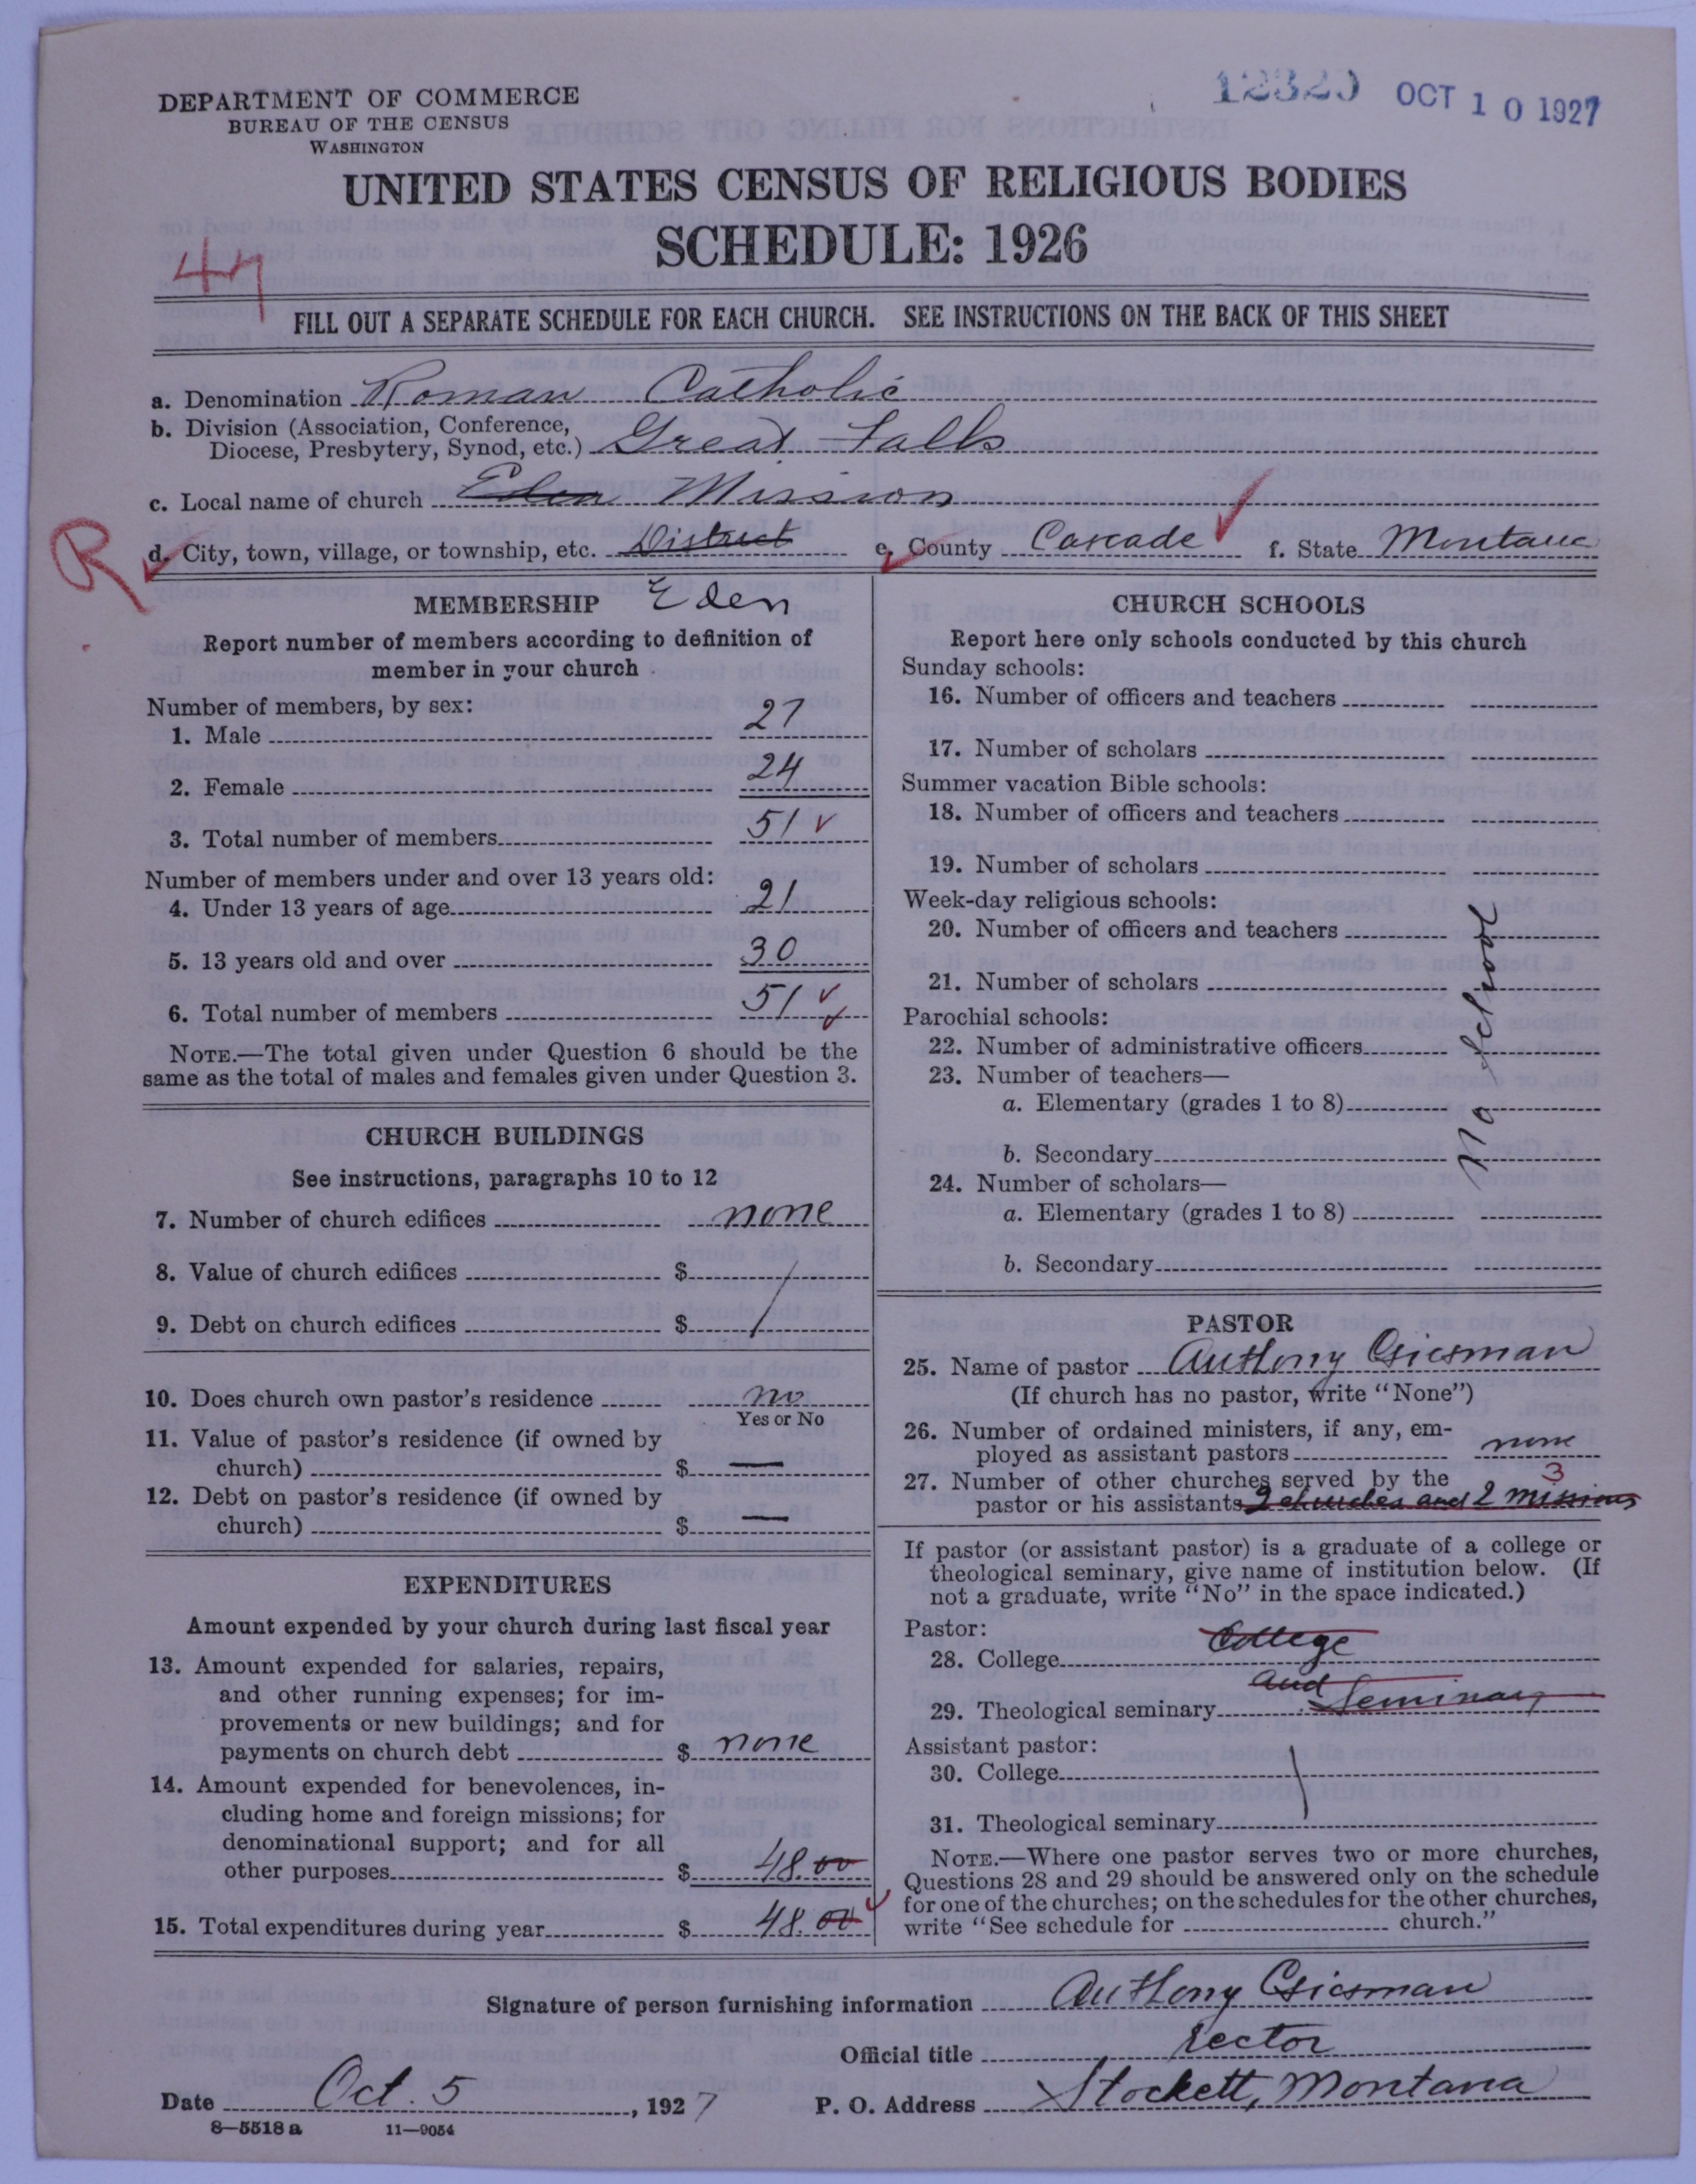 DEPARTMENT OF COMMERCE
BUREAU OF THE CENSUS
WASHINGTON
OCT 10 1927
UNITED STATES CENSUS OF RELIGIOUS BODIES
SCHEDULE: 1926
FILL OUT A SEPARATE SCHEDULE FOR EACH CHURCH. SEE INSTRUCTIONS ON THE BACK OF THIS SHEET
a. Denomination Roman Catholic
b. Division (Association, Conference,
Diocese, Presbytery, Synod, etc.) Great Falls
c. Local name of church Eden Mission
R
d. City, town, village, or township, etc. District
e. County Cascade f. State Montana
MEMBERSHIP Eden
Report number of members according to definition of
member in your church
Number of members, by sex:
1. Male 27
2. Female 24
3. Total number of members 51
Number of members under and over 13 years old:
4. Under 13 years of age 21
5. 13 years old and over 30
6. Total number of members 51
NOTE.—The total given under Question 6 should be the
same as the total of males and females given under Question 3.
CHURCH BUILDINGS
See instructions, paragraphs 10 to 12
7. Number of church edifices none
8. Value of church edifices $
9. Debt on church edifices $
10. Does church own pastor's residence no
Yes or No
11. Value of pastor's residence (if owned by
church) $ —
12. Debt on pastor's residence (if owned by
church) $ —
EXPENDITURES
Amount expended by your church during last fiscal year
13. Amount expended for salaries, repairs,
and other running expenses; for im-
provements or new buildings; and for
payments on church debt $ none
14. Amount expended for benevolences, in-
cluding home and foreign missions; for
denominational support; and for all
other purposes $ 48.00
15. Total expenditures during year $ 48.00
CHURCH SCHOOLS
Report here only schools conducted by this church
Sunday schools:
16. Number of officers and teachers
17. Number of scholars
Summer vacation Bible schools:
18. Number of officers and teachers
19. Number of scholars
Week-day religious schools:
20. Number of officers and teachers
21. Number of scholars
Parochial schools:
22. Number of administrative officers
23. Number of teachers—
a. Elementary (grades 1 to 8)
b. Secondary
24. Number of scholars—
a. Elementary (grades 1 to 8)
b. Secondary
No School
PASTOR
25. Name of pastor Anthony Giesman
(If church has no pastor, write "None")
26. Number of ordained ministers, if any, em-
ployed as assistant pastors none
27. Number of other churches served by the 3
pastor or his assistants 2 churches and 2 missions
If pastor (or assistant pastor) is a graduate of a college or
theological seminary, give name of institution below. (If
not a graduate, write "No" in the space indicated.)
Pastor:
28. College College
and
29. Theological seminary Seminary
Assistant pastor:
30. College
31. Theological seminary
NOTE.—Where one pastor serves two or more churches,
Questions 28 and 29 should be answered only on the schedule
for one of the churches; on the schedules for the other churches,
write "See schedule for church."
Signature of person furnishing information Anthony Giesman
Official title rector
Date Oct. 5, 1927 P. O. Address Stockett, Montana
8—5518 a 11—9054